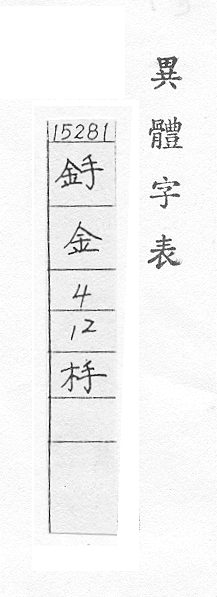 異體字表
15281
金
4
12
杽